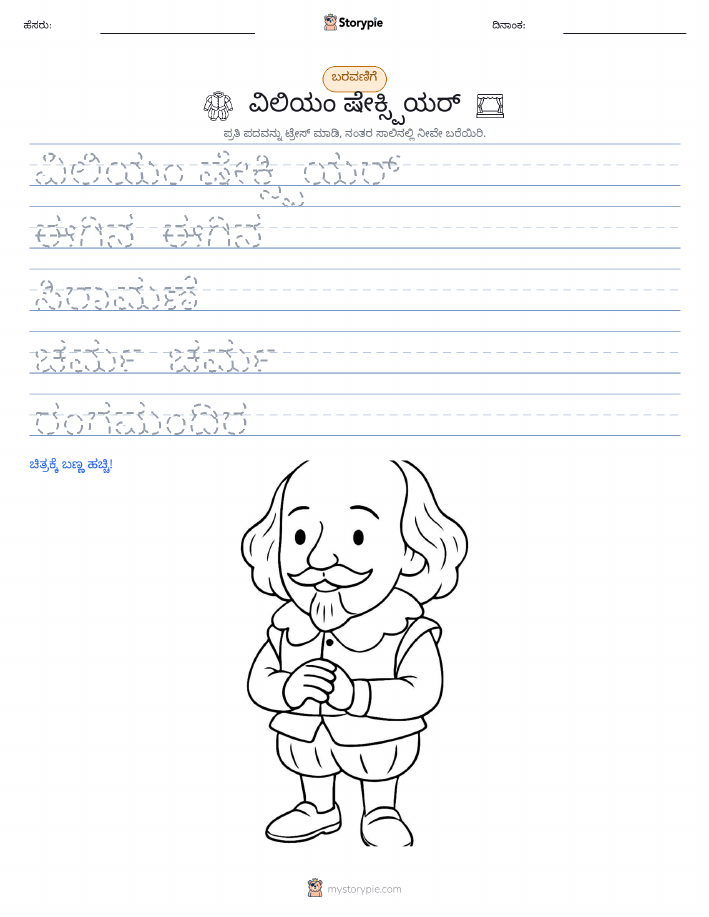 ಹೆಸರು:
Storypie
ದಿನಾಂಕ:
ಬರವಣಿಗೆ
ವಿಲಿಯಂ ಷೇಕ್ಸ್ಪಿಯರ್
ಪ್ರತಿ ಪದವನ್ನು ಟ್ರೇಸ್ ಮಾಡಿ, ನಂತರ ಸಾಲಿನಲ್ಲಿ ನೀವೇ ಬರೆಯಿರಿ.
ವಿಲಿಯಂ ಷೇಕ್ಸ್ಪಿಯರ್
ಈಗಿನ ಈಗಿನ
ರಂಗಮಂದಿರ
ಚಿತ್ರಕ್ಕೆ ಬಣ್ಣ ಹಚ್ಚಿ!
mystorypie.com